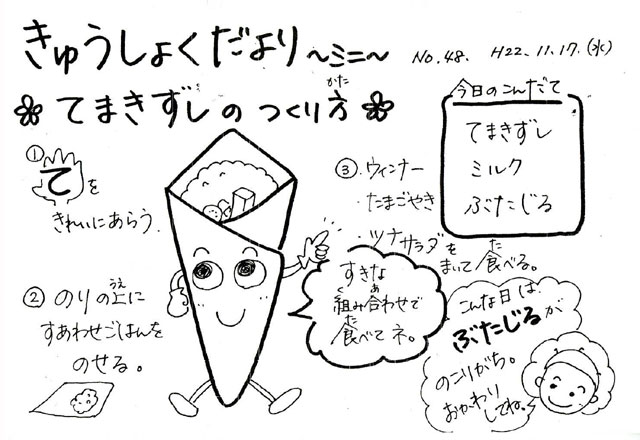 きゅうしょくだより ～ミニ～ No.48. H22.11.17.(水)
てまきずしのつくり方
かた
今日のこんだて
てまきずし
ミルク
ぶたじる
① てを
きれいにあらう。
② のりの上に
うえ
すあわせごはんを
のせる。
③・ウィンナー
・たまごやき
・ツナサラダを
まいて食べる。
た
すきな
組み合わせで
く あ
食べてネ。
た
こんな日は、
ぶたじるが
のこりがち。
おかわり
してね。